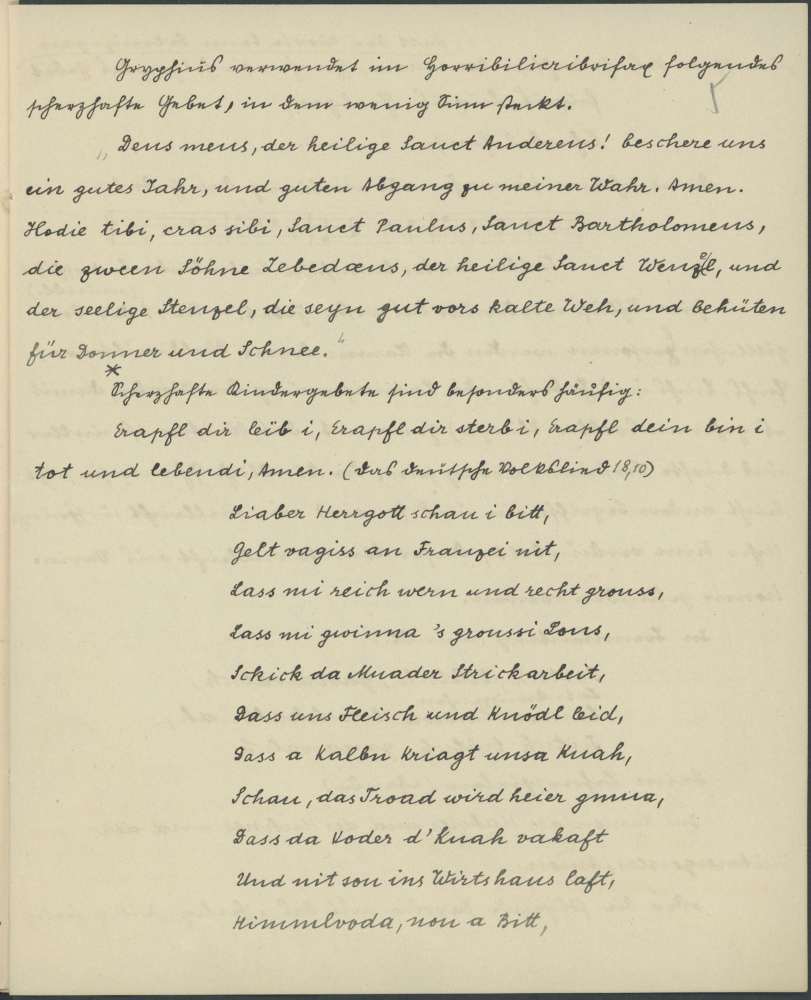 Gryphius verwendet im Horribilicribrifax folgendes
scherzhafte Gebet, in dem wenig Sinn steckt.
„Deus meus, der heilige Sanct Andereus! beschere uns
ein gutes Jahr, und guten Abgang zu meiner Wahr. Amen.
Hodie tibi, cras sibi, Sanct Paulus, Sanct Bartholomeus,
die zween Söhne Zebedæus, der heilige Sanct Wenzel, und
der seelige Stenzel, die seyn gut vors kalte Weh, und behüten
für Donner und Schnee."
* Scherzhafte Kindergebete sind besonders häufig:
Erapfl dir leib i, Erapfl dir sterb i, Erapfl dein bin i
tot und lebendi, Amen. (Das deutsche Volkslied 18,10)
Liaber Herrgott schau i bitt,
Gelt vagiss an Franzei nit,
Lass mi reich wern und recht grouss,
Lass mi gwinna 's groussi Lous,
Schick da Muader Strickarbeit,
Dass uns Fleisch und Knödl leid,
Dass a Kalbn kriagt unsa Kuah,
Schau, das Troad wird heier gmua,
Dass da Voder d' Kuah vakaft
Und nit sou ins Wirtshaus laft,
Himmlvoda, nou a Bitt,